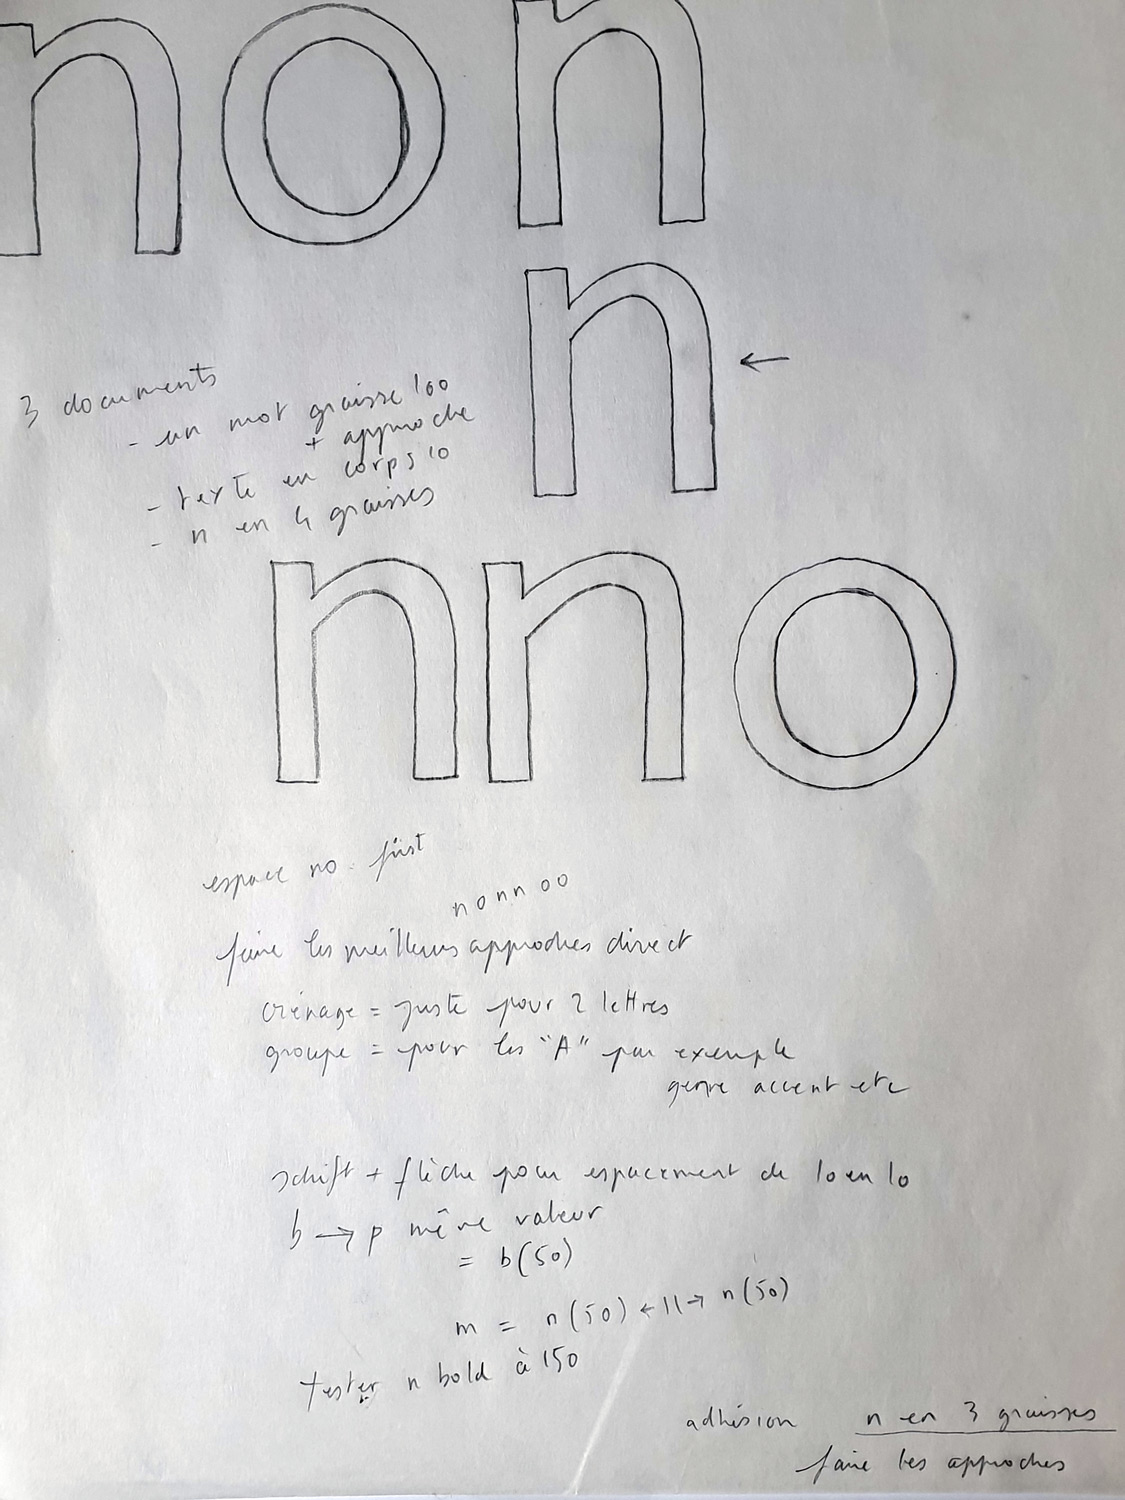 non
n ←
3 documents
- un mot graisse 100
+ approche
- texte en corps 10
- n en 4 graisses
nno
espace no first
nonnoo
faire les meilleurs approches direct
crénage = juste pour 2 lettres
groupe = pour les "A" par exemple
genre accent etc
schift + flèche pour espacement de 10 en 10
b → p même valeur
= b(50)
m = n(50) ←||→ n(50)
tester n bold à 150
adhésion n en 3 graisses
faire les approches